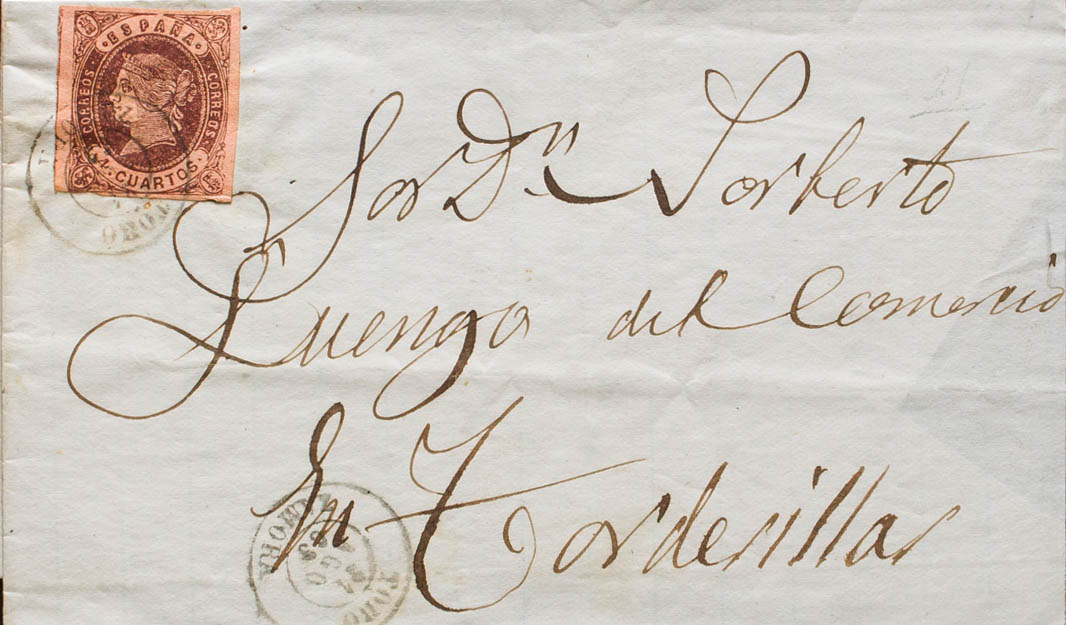 ESPAÑA
CORREOS CORREOS
4 CUARTOS.
TORO
Sor Dn Norberto
Luengo del Comercio
En Tordesillas
TORO
AGO
ZAMORA